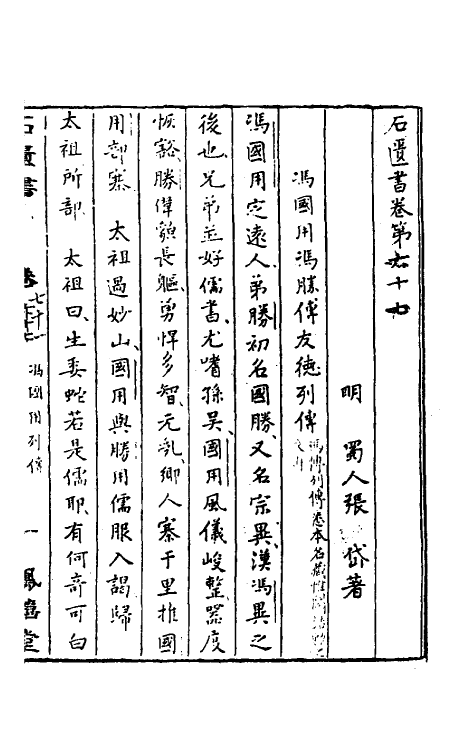 石匱書卷第六十七
明　蜀人張　岱著
馮國用馮勝傅友德列傳
馮國用定遠人弟勝初名國勝又名宗異漢馮異之
後也兄弟並好儒書尤嗜孫吳國用風儀峻整器度
恢豁勝偉貌長軀勇悍多智元亂鄉人寨千里推國
用部寨　太祖過妙山國用與勝用儒服入謁歸
太祖所部　太祖曰生委蛇若是儒耶有何奇可白
石匱書　卷七十一　馮國用列傳　一　鳳嬉堂